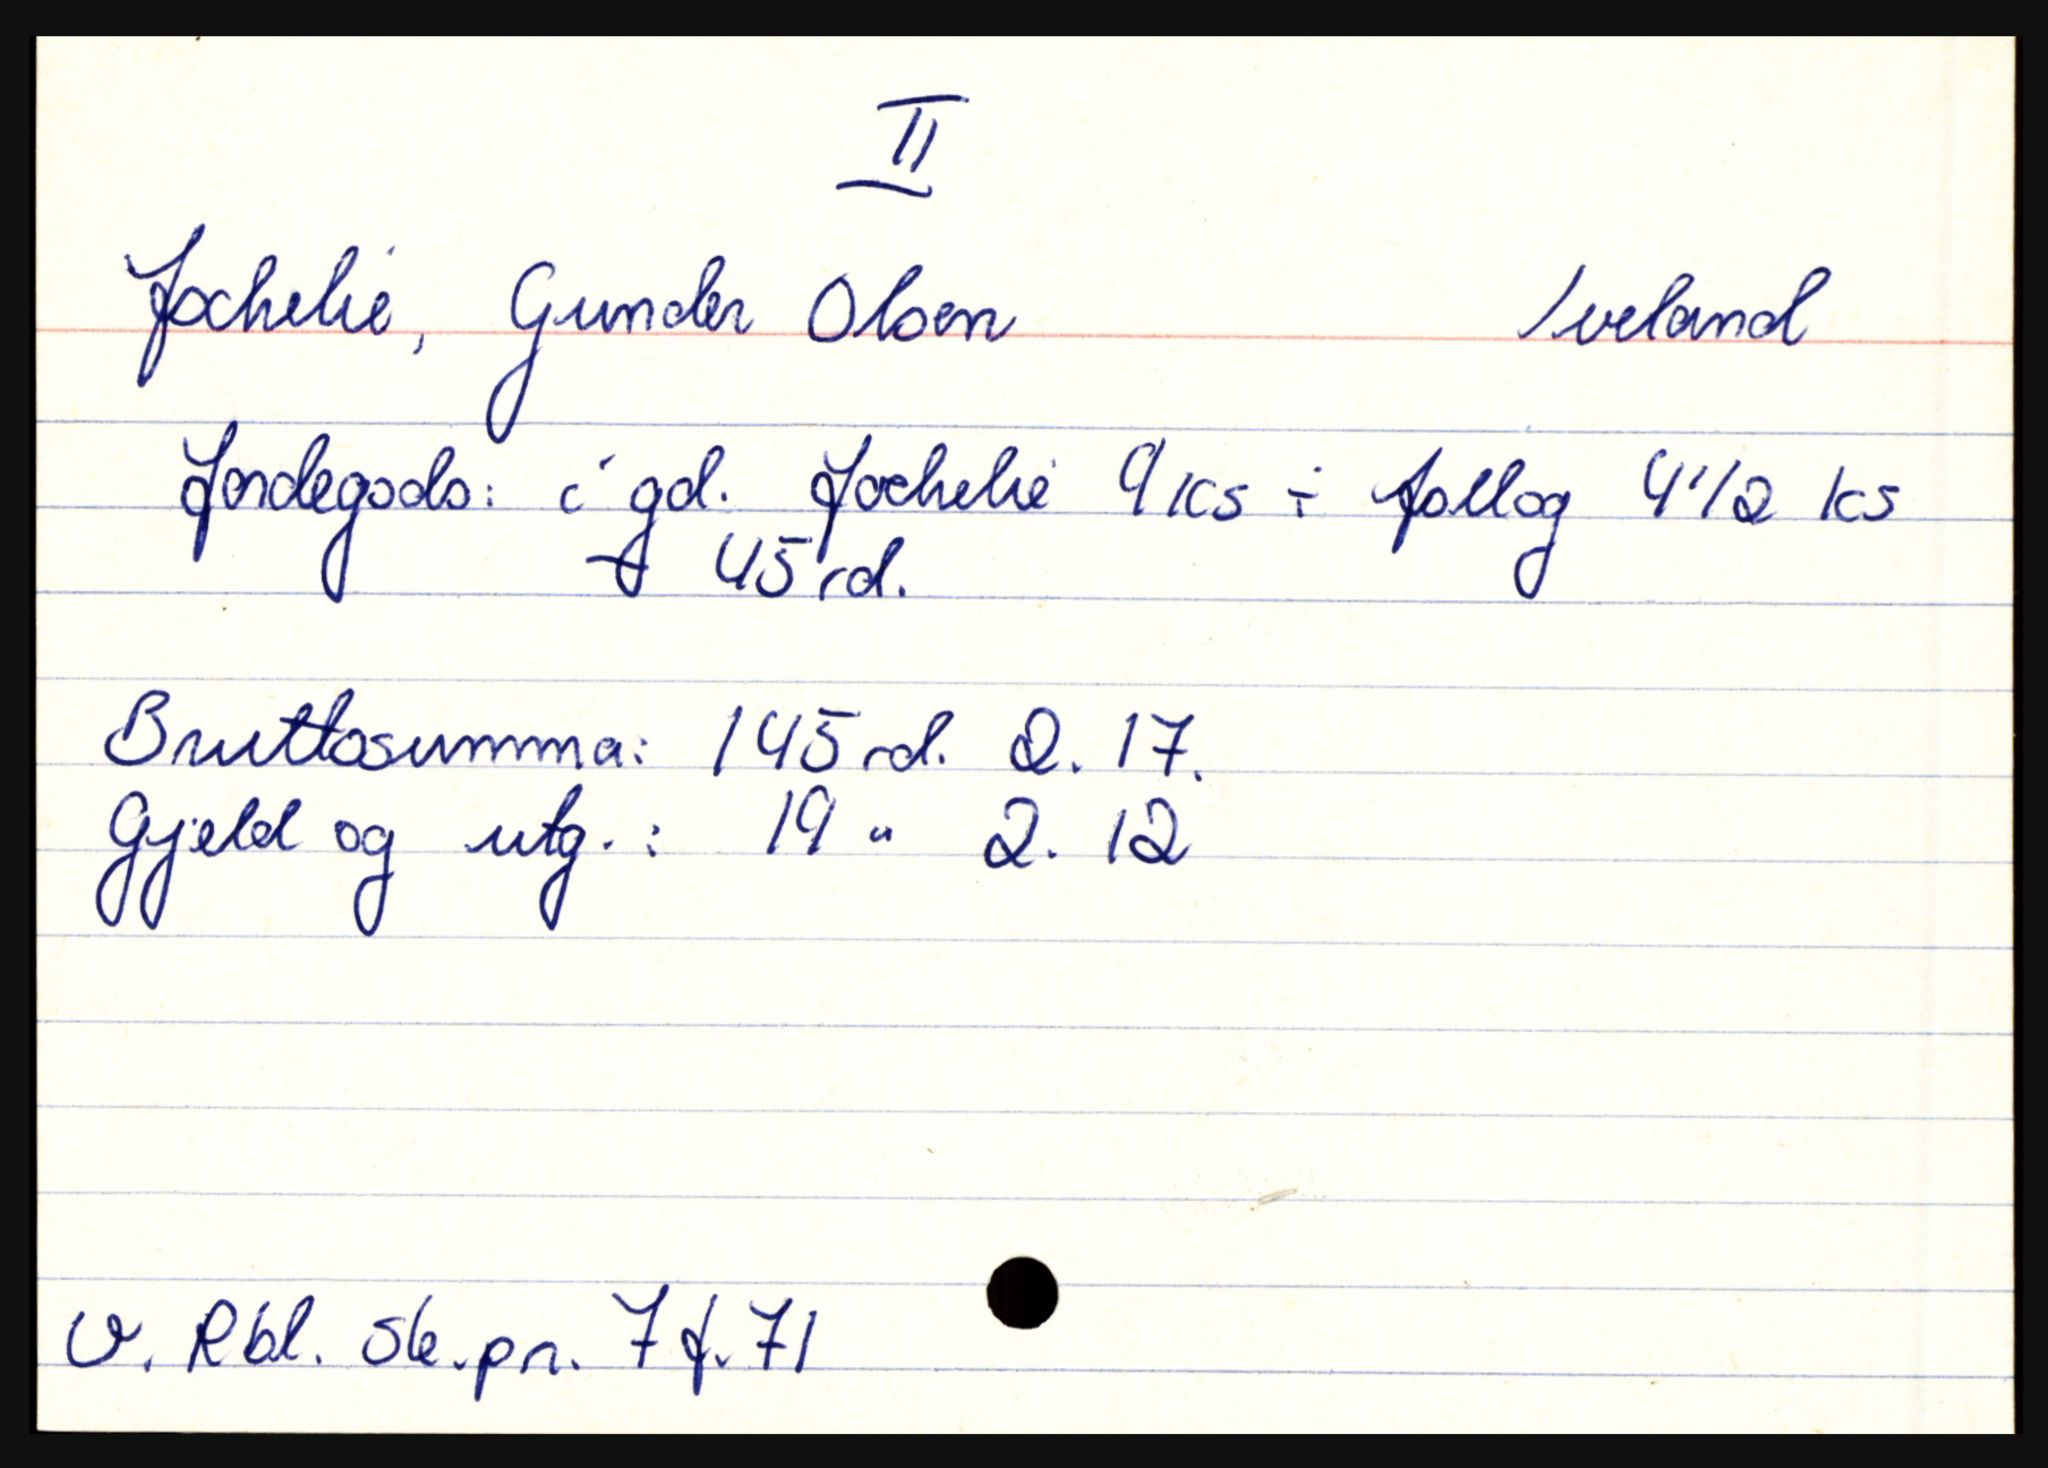 II
Jochelie, Gunder Olsen Iveland
Jordegods: i gd. Jochelie 9 ks ÷ follog 4 1/2 ks
45 rd.
Bruttosumma: 145 rd. 2. 17.
Gjeld og utg.: 19 " 2. 12
V. Rbl. sk.pr. 7 f. 71